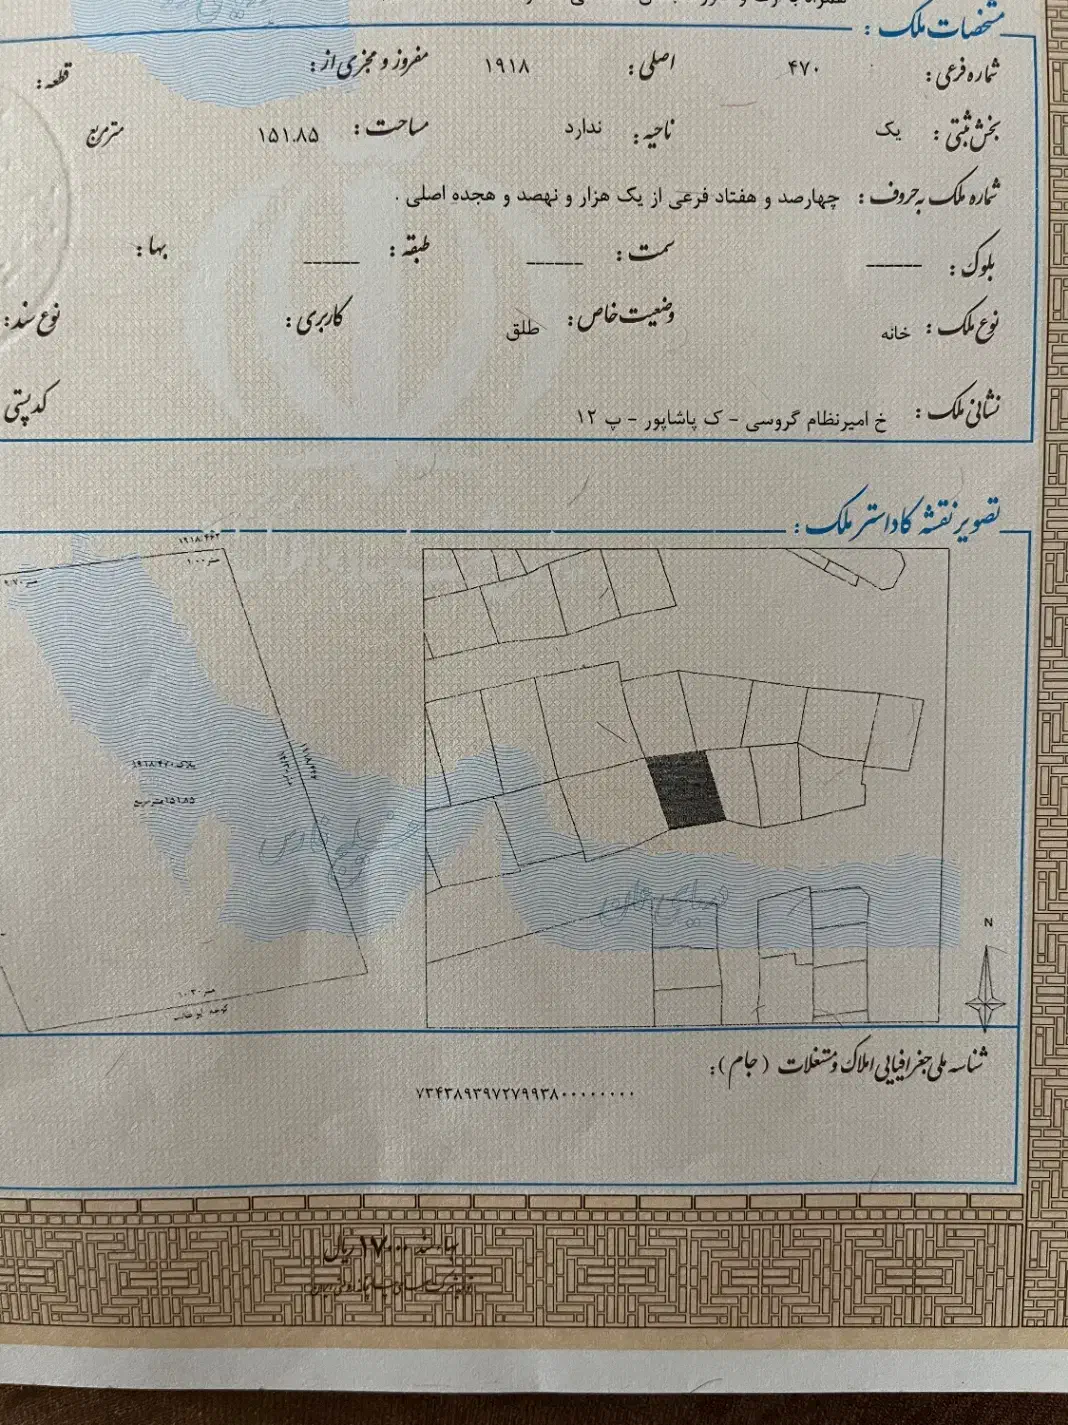 مشخصات ملک :
شماره فرعی : ۴۷۰ اصلی : ۱۹۱۸ مفروز و مجزی از : قطعه :
بخش ثبتی : یک ناحیه : ندارد مساحت : ۱۵۱.۸۵ مترمربع
شماره ملک به حروف : چهارصد و هفتاد فرعی از یک هزار و نهصد و هجده اصلی .
بلوک : ------ سمت : ------ طبقه : ------ بها :
نوع ملک : خانه وضعیت خاص : طلق کاربری : نوع سند :
نشانی ملک : خ امیرنظام گروسی - ک پاشاپور - پ ۱۲ کد پستی
تصویر نقشه کاداستر ملک :
۱۹۱۸/۴۶۳
متر ۱۰.۰۰
متر ۹.۷۰
۱۹۱۸/۴۶۷
پلاک ۱۹۱۸/۴۷۰
۱۵۱.۸۵ متر مربع
خلیج فارس
دریای عمان
N
متر ۱۰.۳۰
شناسه ملی جغرافیایی املاک و مستغلات (جام) :
۷۳۴۳۸۹۳۹۷۲۷۹۹۳۸۰۰۰۰۰۰۰۰۰
بهاء سند ۱۷۰۰۰ ریال